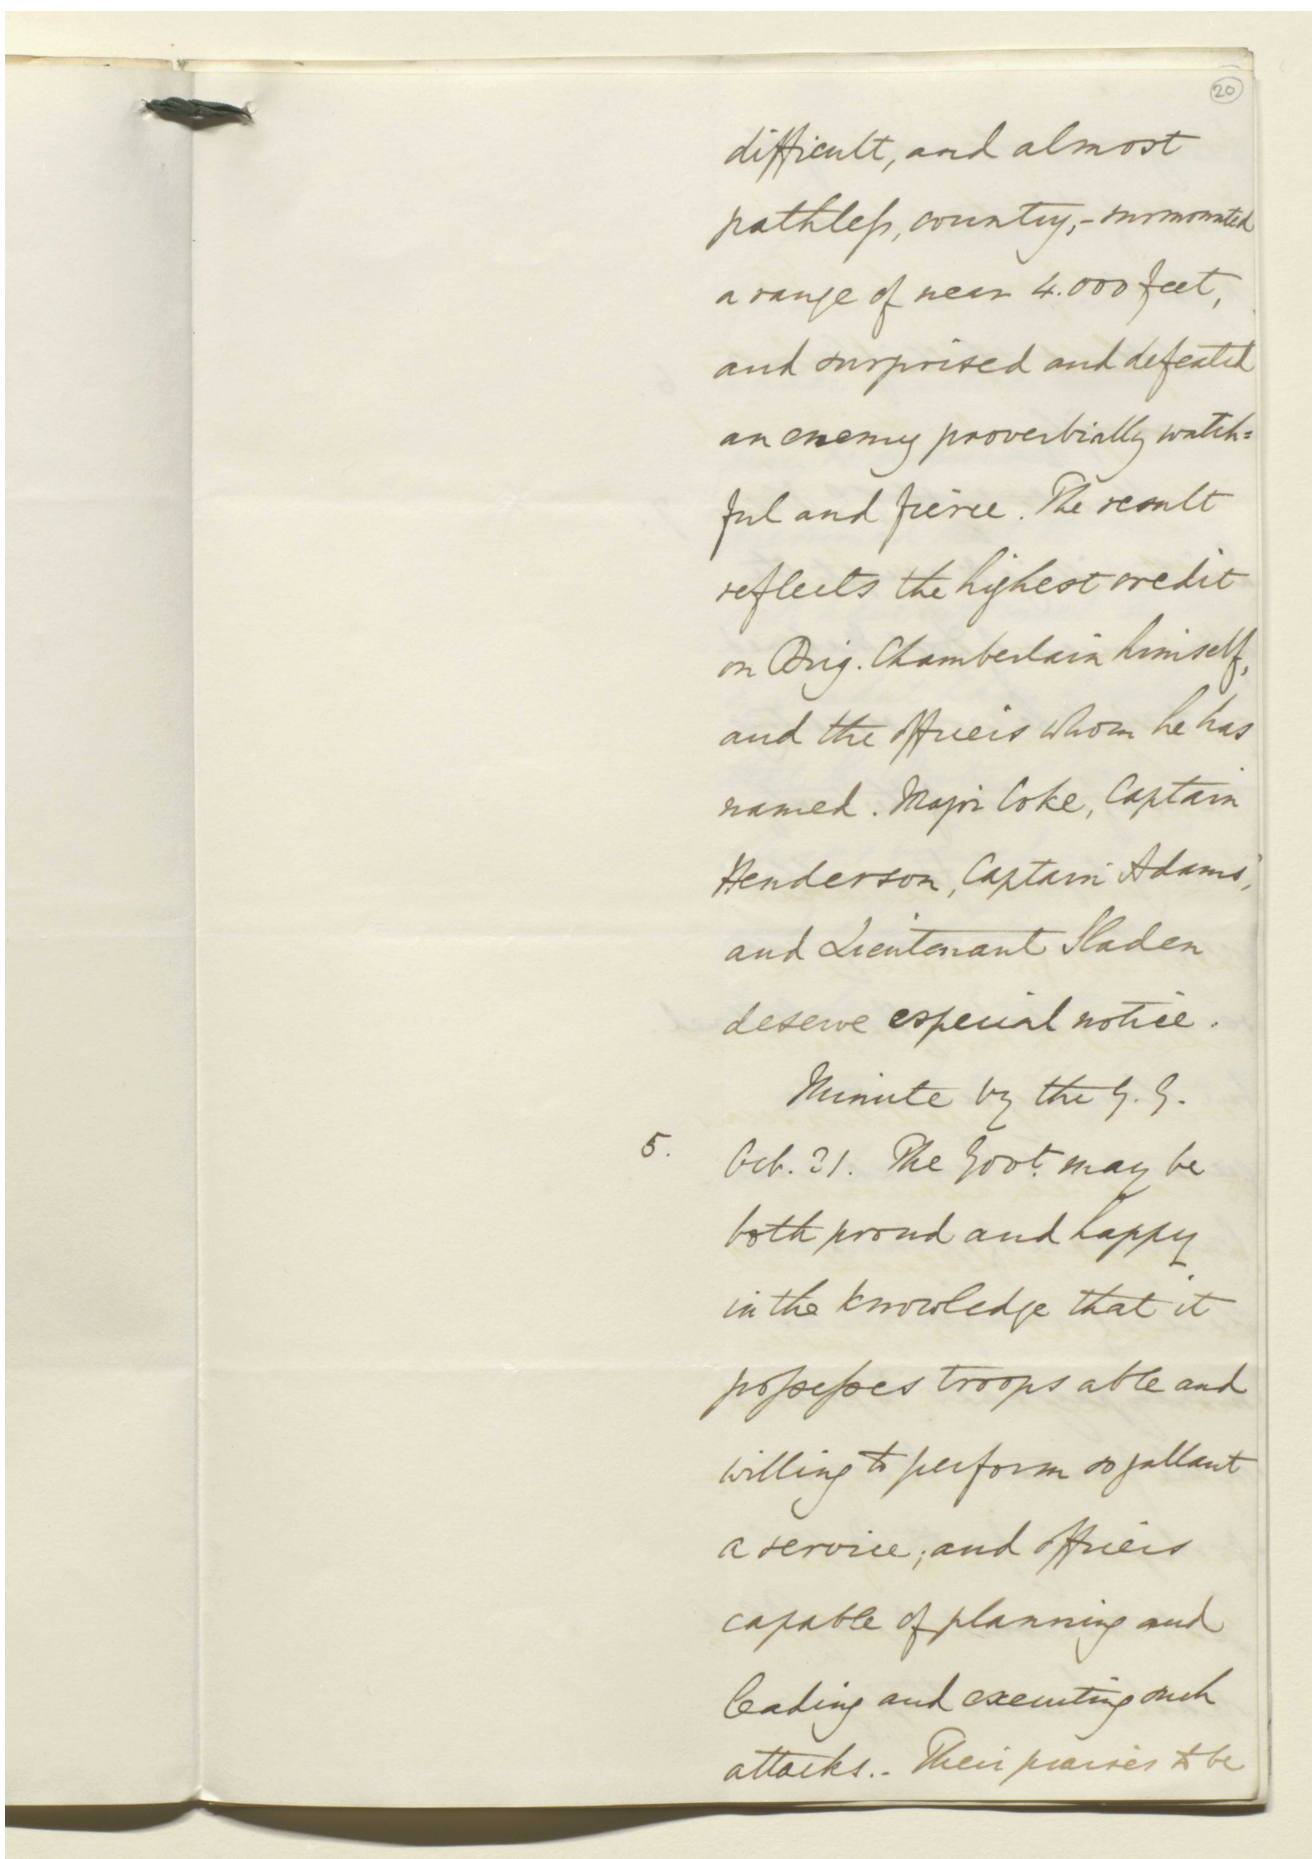 20
difficult, and almost
pathless, country, - surmounted
a range of near 4.000 feet,
and surprised and defeated
an enemy proverbially watch=
ful and fierce. The result
reflects the highest credit
on Brig. Chamberlain himself,
and the officers whom he has
named. Major Coke, Captain
Henderson, Captain Adams,
and Lieutenant Sladen
deserve especial notice.
Minute by the G. G.
5. Oct. 21. The Govt. may be
both proud and happy
in the knowledge that it
possesses troops able and
willing to perform so gallant
a service; and officers
capable of planning and
leading and executing such
attacks. - Their praises to be